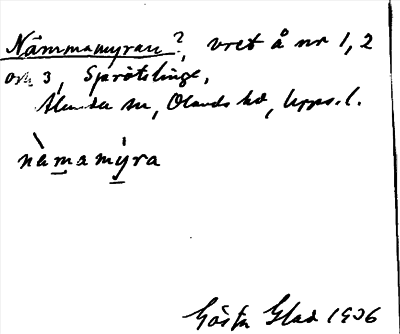 Nåmmamyran?, vret å nr 1, 2
och 3, Sprötslinge,
Alunda sn, Olands hd, Upps. l.
nàmamýra
Gösta Glad 1906